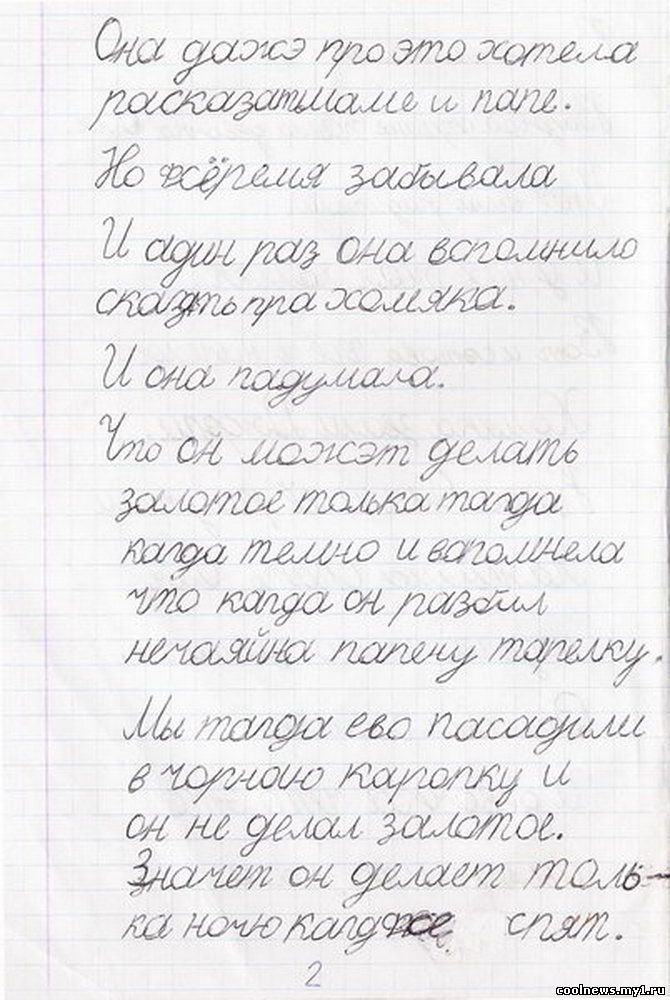 Она дажэ про это хотела
расказатьмаме и папе.
Но всёремя забывала
И адин раз она вспомнило
сказать пра хомяка.
И она падумала.
Что он можэт делать
залотое толька тагда
кагда темно и вспомнела
что кагда он разбил
нечаяйна папену тарелку.
Мы тагда ево пасадили
в чорною каропку и
он не делал залотое.
Значет он делает толь-
ка ночю кагда все спят.
2
coolnews.my1.ru